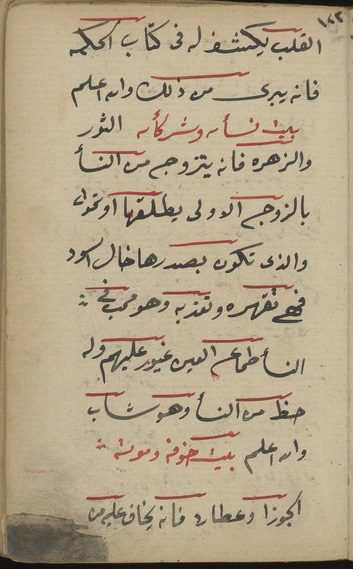 ١٤٣
القلب يكشف له فى كتاب الحكمه
فانه يبرى من ذلك والله اعلم
بيت نسأه وشركأه الثور
والزهره فانه يتزوج من النسأ
بالزوج الاولى يطلقها او تموت
والذى تكون بصدرها خال اسود
فهى تقهره وتعذبه وهو محب فى
النسأ طماع العين غيور عليهم وله
حظ من النسأ وهو شاب
والله اعلم بيت خوفه وموته
الجوزا وعطارد فانه يخاف عليه من